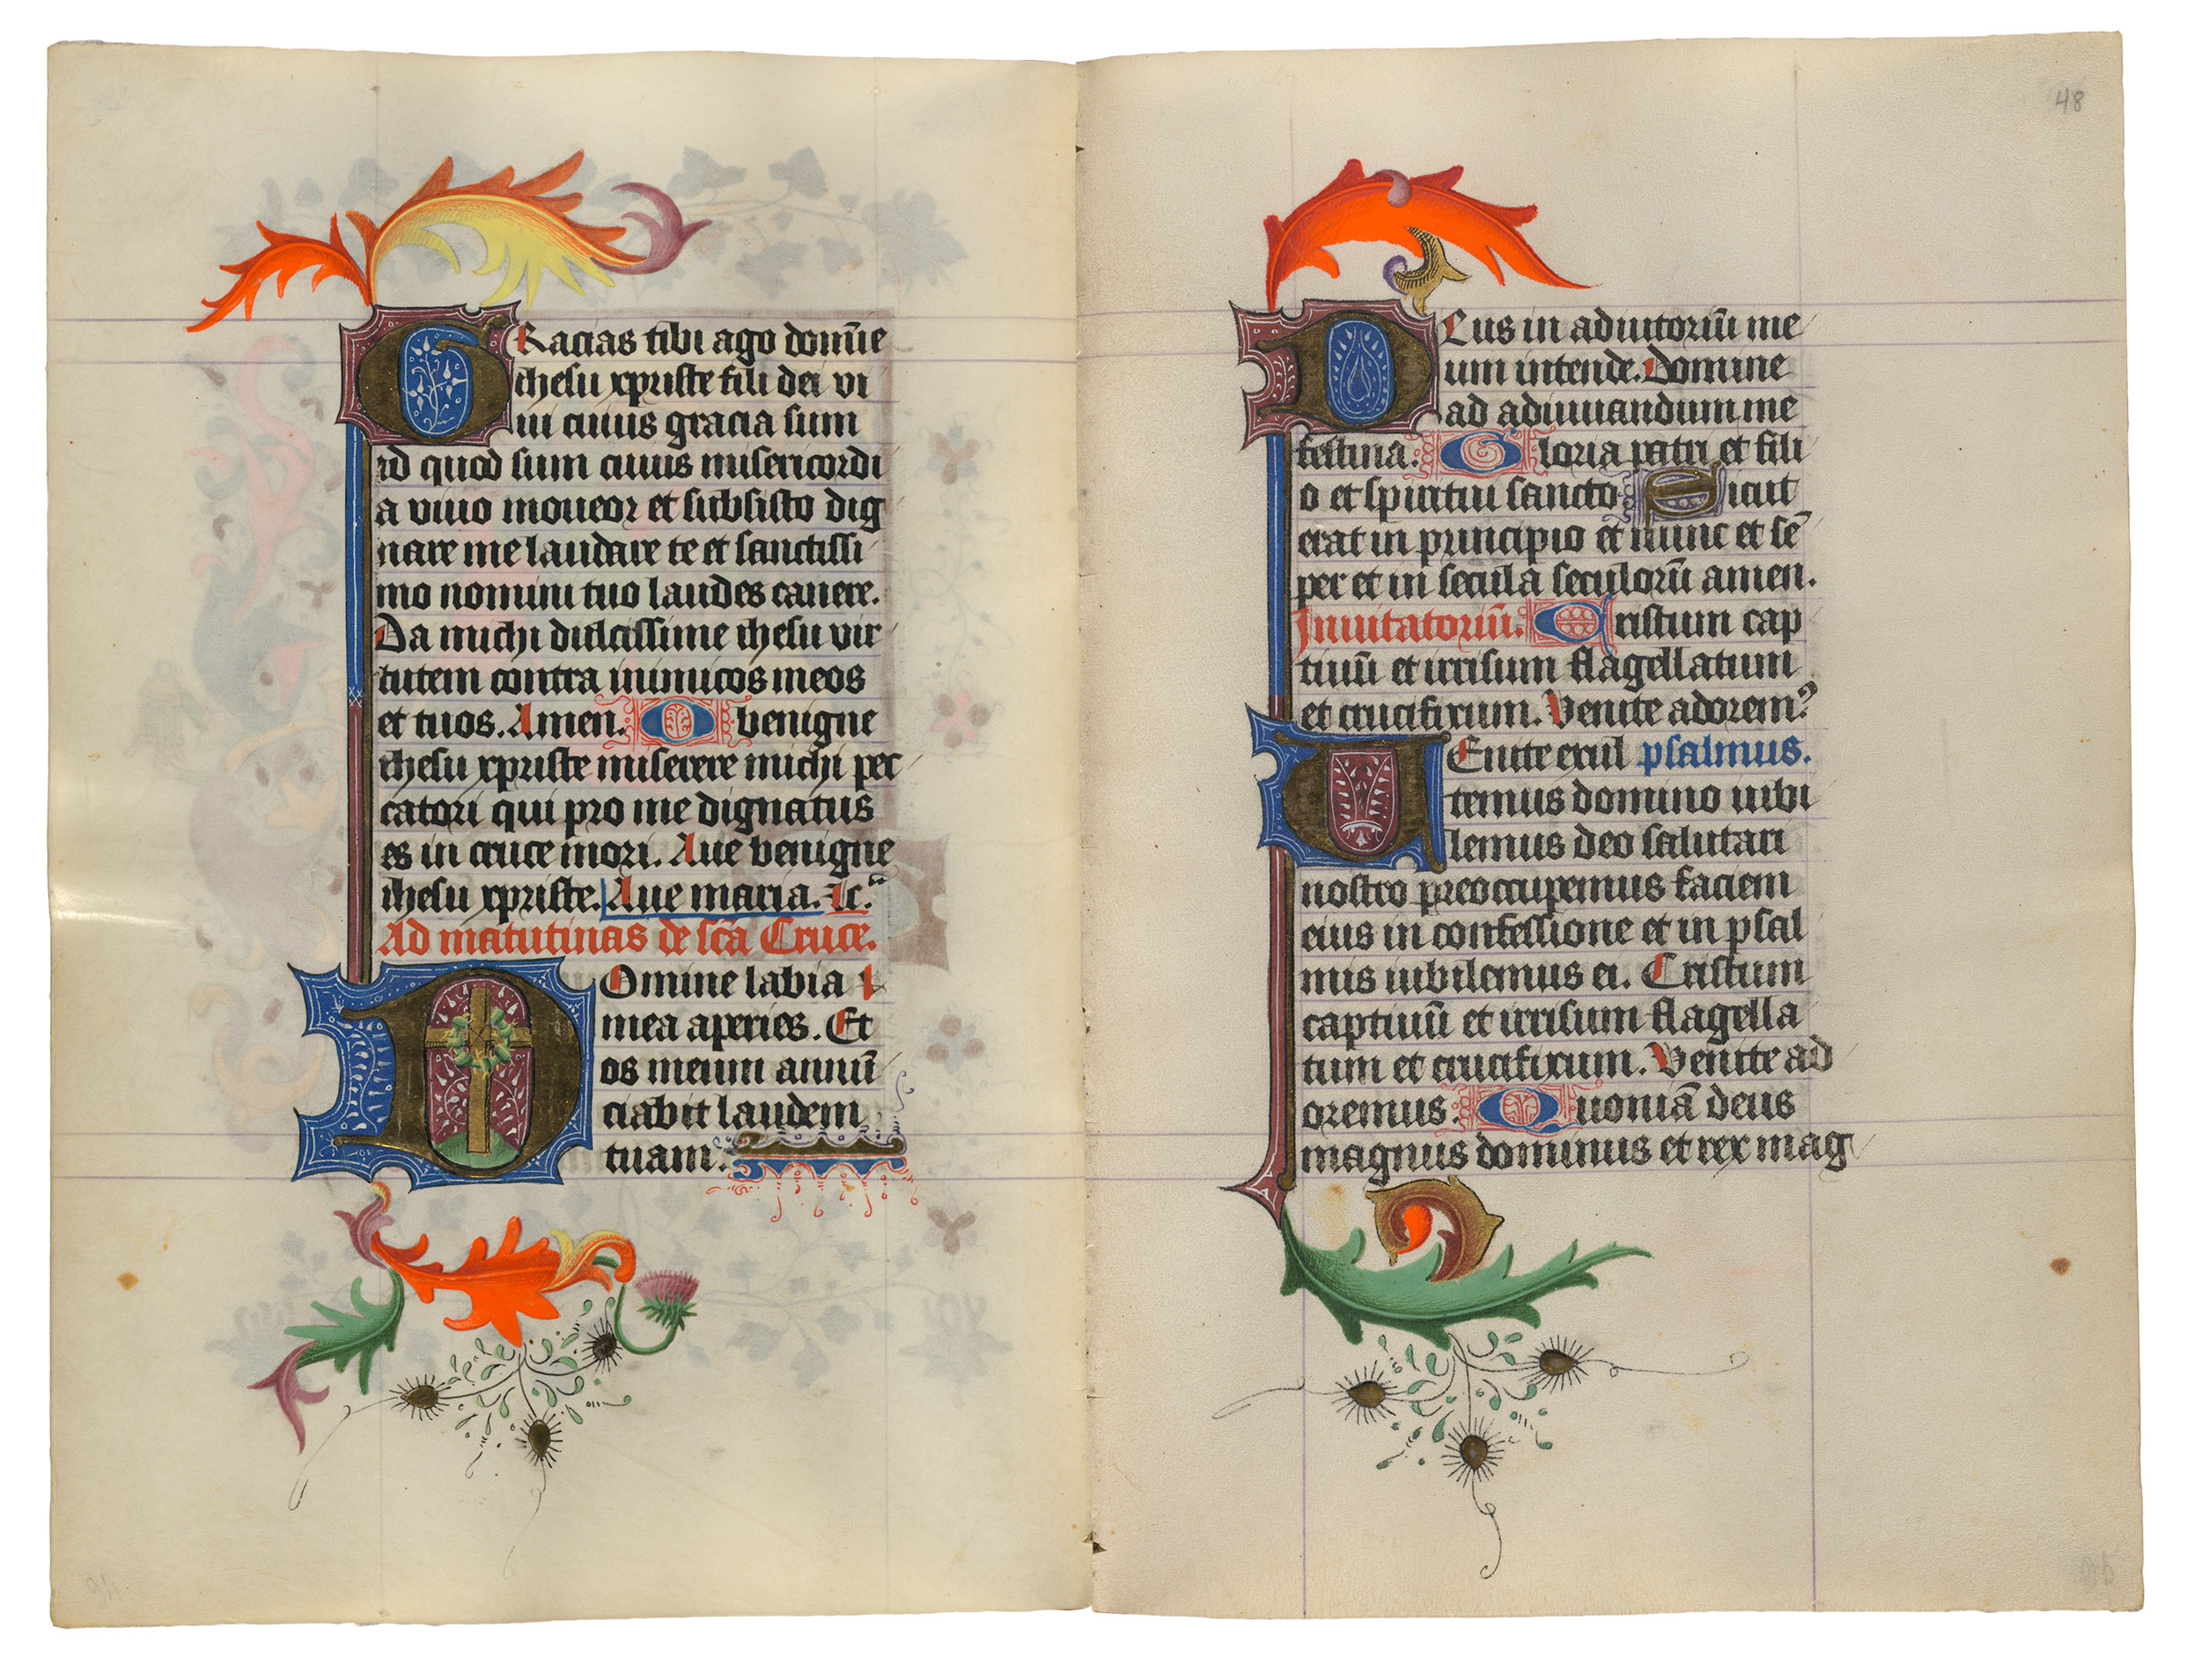 GRacias tibi ago domīe
ihesu xpriste fili dei vi
ui cuius gracia sum
id quod sum cuius misericordi
a viuo moueor et subsisto dig
nare me laudare te et sanctissi
mo nomini tuo laudes canere.
Da michi dulcissime ihesu vir
tutem contra inimicos meos
et tuos. Amen. O benigne
ihesu xpriste miserere michi pec
catori qui pro me dignatus
es in cruce mori. Aue benigne
ihesu xpriste. Aue maria.
Ad matutinas de scā Cruce.
DOmine labia
mea aperies. Et
os meum annū
ciabit laudem
tuam.
48
DEus in adiutoriū me
um intende. Domine
ad adiuuandum me
festina. Gloria patri et fili
o et spiritui sancto Sicut
erat in principio et nunc et sē
per et in secula seculorū amen.
Inuitatoriū. Cristum cap
tiuū et irrisum flagellatum
et crucifixum. Venite adorem⁹
VEnite exul psalmus.
temus domino iubi
lemus deo salutari
nostro preoccupemus faciem
eius in confessione et in psal
mis iubilemus ei. Cristum
captiuū et irrisum flagella
tum et crucifixum. Venite ad
oremus. Quoniā deus
magnus dominus et rex mag